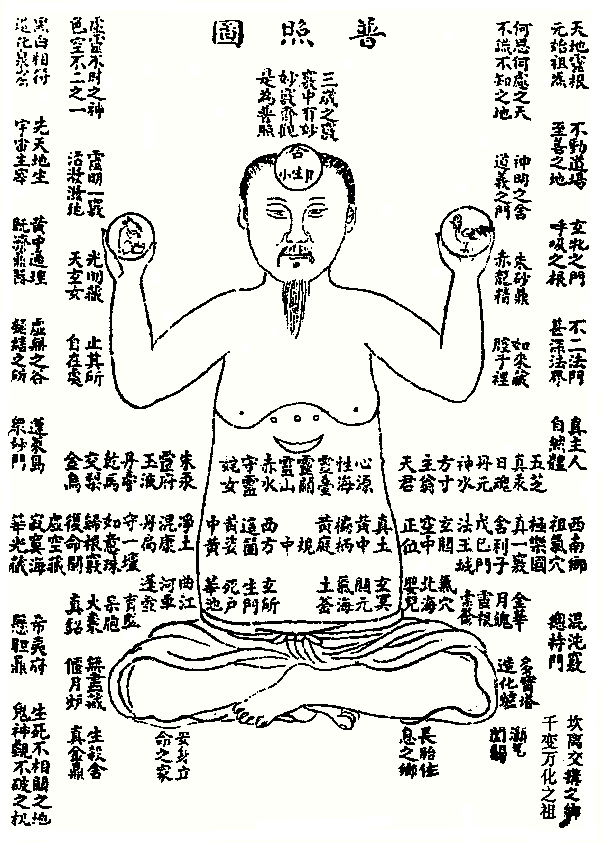 普照圖
三成之竅
竅中有妙
妙竅齊觀
是為普照
天地靈根
元始祖炁
不動道場
至善之地
玄牝之門
呼吸之根
不二法門
甚深法界
真主人
自然體
西南鄉
祖氣穴
混沌竅
總持門
坎离交媾之鄉
千变万化之祖
何思何慮之天
不識不知之地
神明之舍
道義之門
朱砂鼎
赤龍精
如來藏
腔子裡
五芝
真汞
日魂
丹元
神水
方寸
主翁
天君
極樂國
真一竅
舍利子
戊己門
法王城
玄關
空中
正位
金華
月魄
靈根
氣穴
北海
嬰兒
多寶塔
造化爐
灝氣
長胎住
息之鄉
心源
性海
靈臺
靈關
靈山
赤水
守靈
姹女
真土
黃中
黃庭
規
中
西方
這箇
黃婆
中黃
玄冥
關元
氣海
土釜
生門
死戶
華池
朱汞
靈府
玉液
乾馬
交梨
金烏
淨土
混康
丹扃
守一壇
如意珠
歸根竅
復命關
虛空藏
寂寞海
華光藏
曲江
河車
蓬壺
火棗
真鉛
無盡藏
偃月爐
生殺舍
真金鼎
安身立
命之家
虛靈不昧之神
色空不二之一
靈明一竅
活潑潑地
光明藏
天玄女
止其所
自在處
黑白相符
造化泉窟
先天地生
宇宙主宰
黃中通理
既濟鼎器
虛無之谷
凝結之所
蓬萊島
眾妙門
希夷府
懸胎鼎
生死不相關之地
鬼神覷不破之机